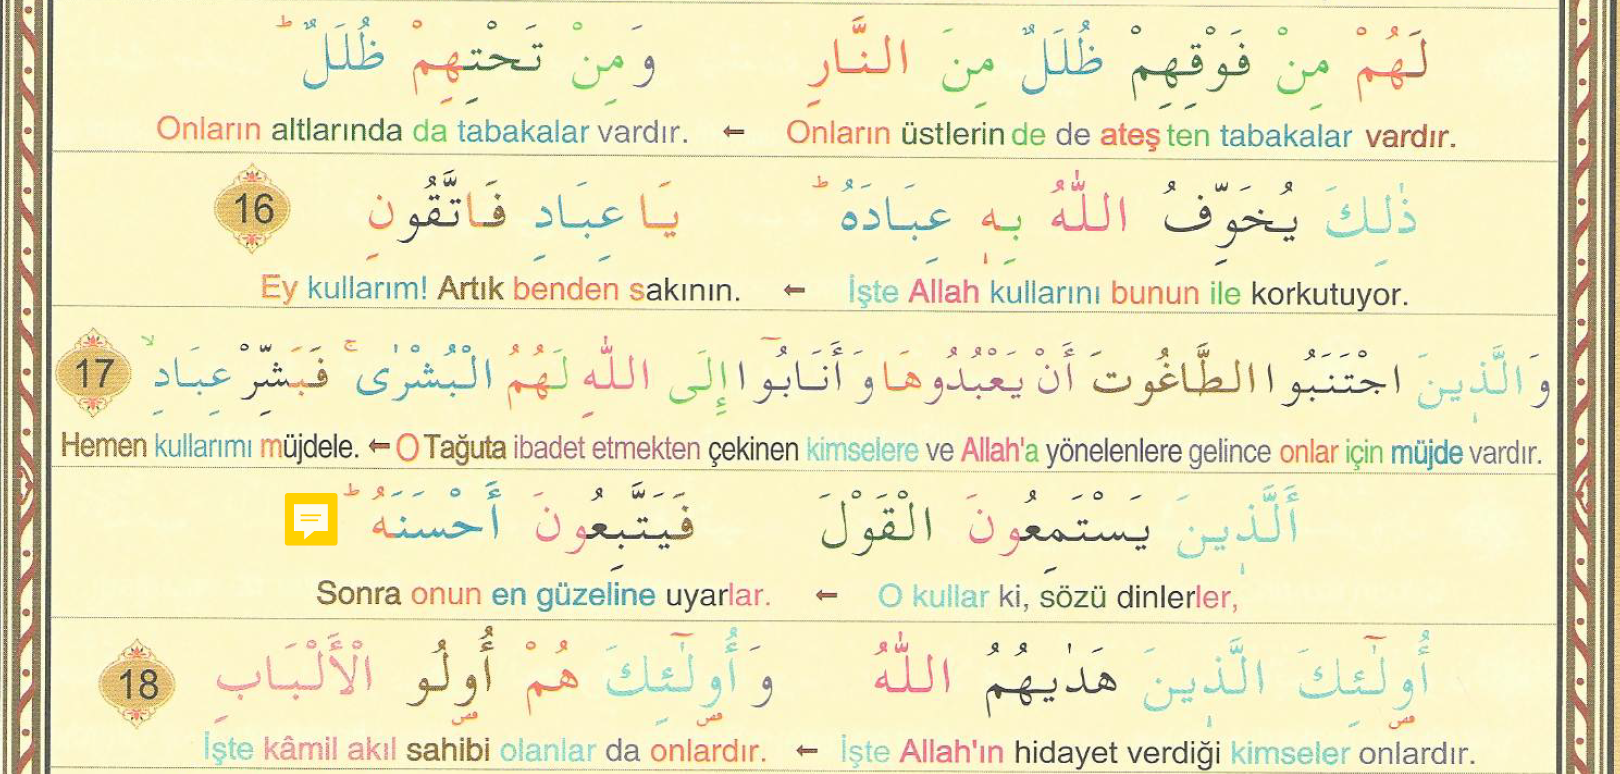 لَهُمْ مِنْ فَوْقِهِمْ ظُلَلٌ مِنَ النَّارِ وَمِنْ تَحْتِهِمْ ظُلَلٌ ط
Onların üstlerinde de ateşten tabakalar vardır. ← Onların altlarında da tabakalar vardır.
ذٰلِكَ يُخَوِّفُ اللّٰهُ بِهٖ عِبَادَهُ ط يَا عِبَادِ فَاتَّقُونِ 16
İşte Allah kullarını bunun ile korkutuyor. ← Ey kullarım! Artık benden sakının.
وَالَّذٖينَ اجْتَنَبُوا الطَّاغُوتَ أَنْ يَعْبُدُوهَا وَأَنَابُٓوا إِلَى اللّٰهِ لَهُمُ الْبُشْرٰى ج فَبَشِّرْ عِبَادِ لا 17
O Tağuta ibadet etmekten çekinen kimselere ve Allah'a yönelenlere gelince onlar için müjde vardır. ← Hemen kullarımı müjdele.
أَلَّذٖينَ يَسْتَمِعُونَ الْقَوْلَ فَيَتَّبِعُونَ أَحْسَنَهُ ط
O kullar ki, sözü dinlerler, ← Sonra onun en güzeline uyarlar.
أُولٰٓئِكَ الَّذٖينَ هَدٰيهُمُ اللّٰهُ وَأُولٰٓئِكَ هُمْ أُولُو الْأَلْبَابِ 18
İşte Allah'ın hidayet verdiği kimseler onlardır. ← İşte kâmil akıl sahibi olanlar da onlardır.